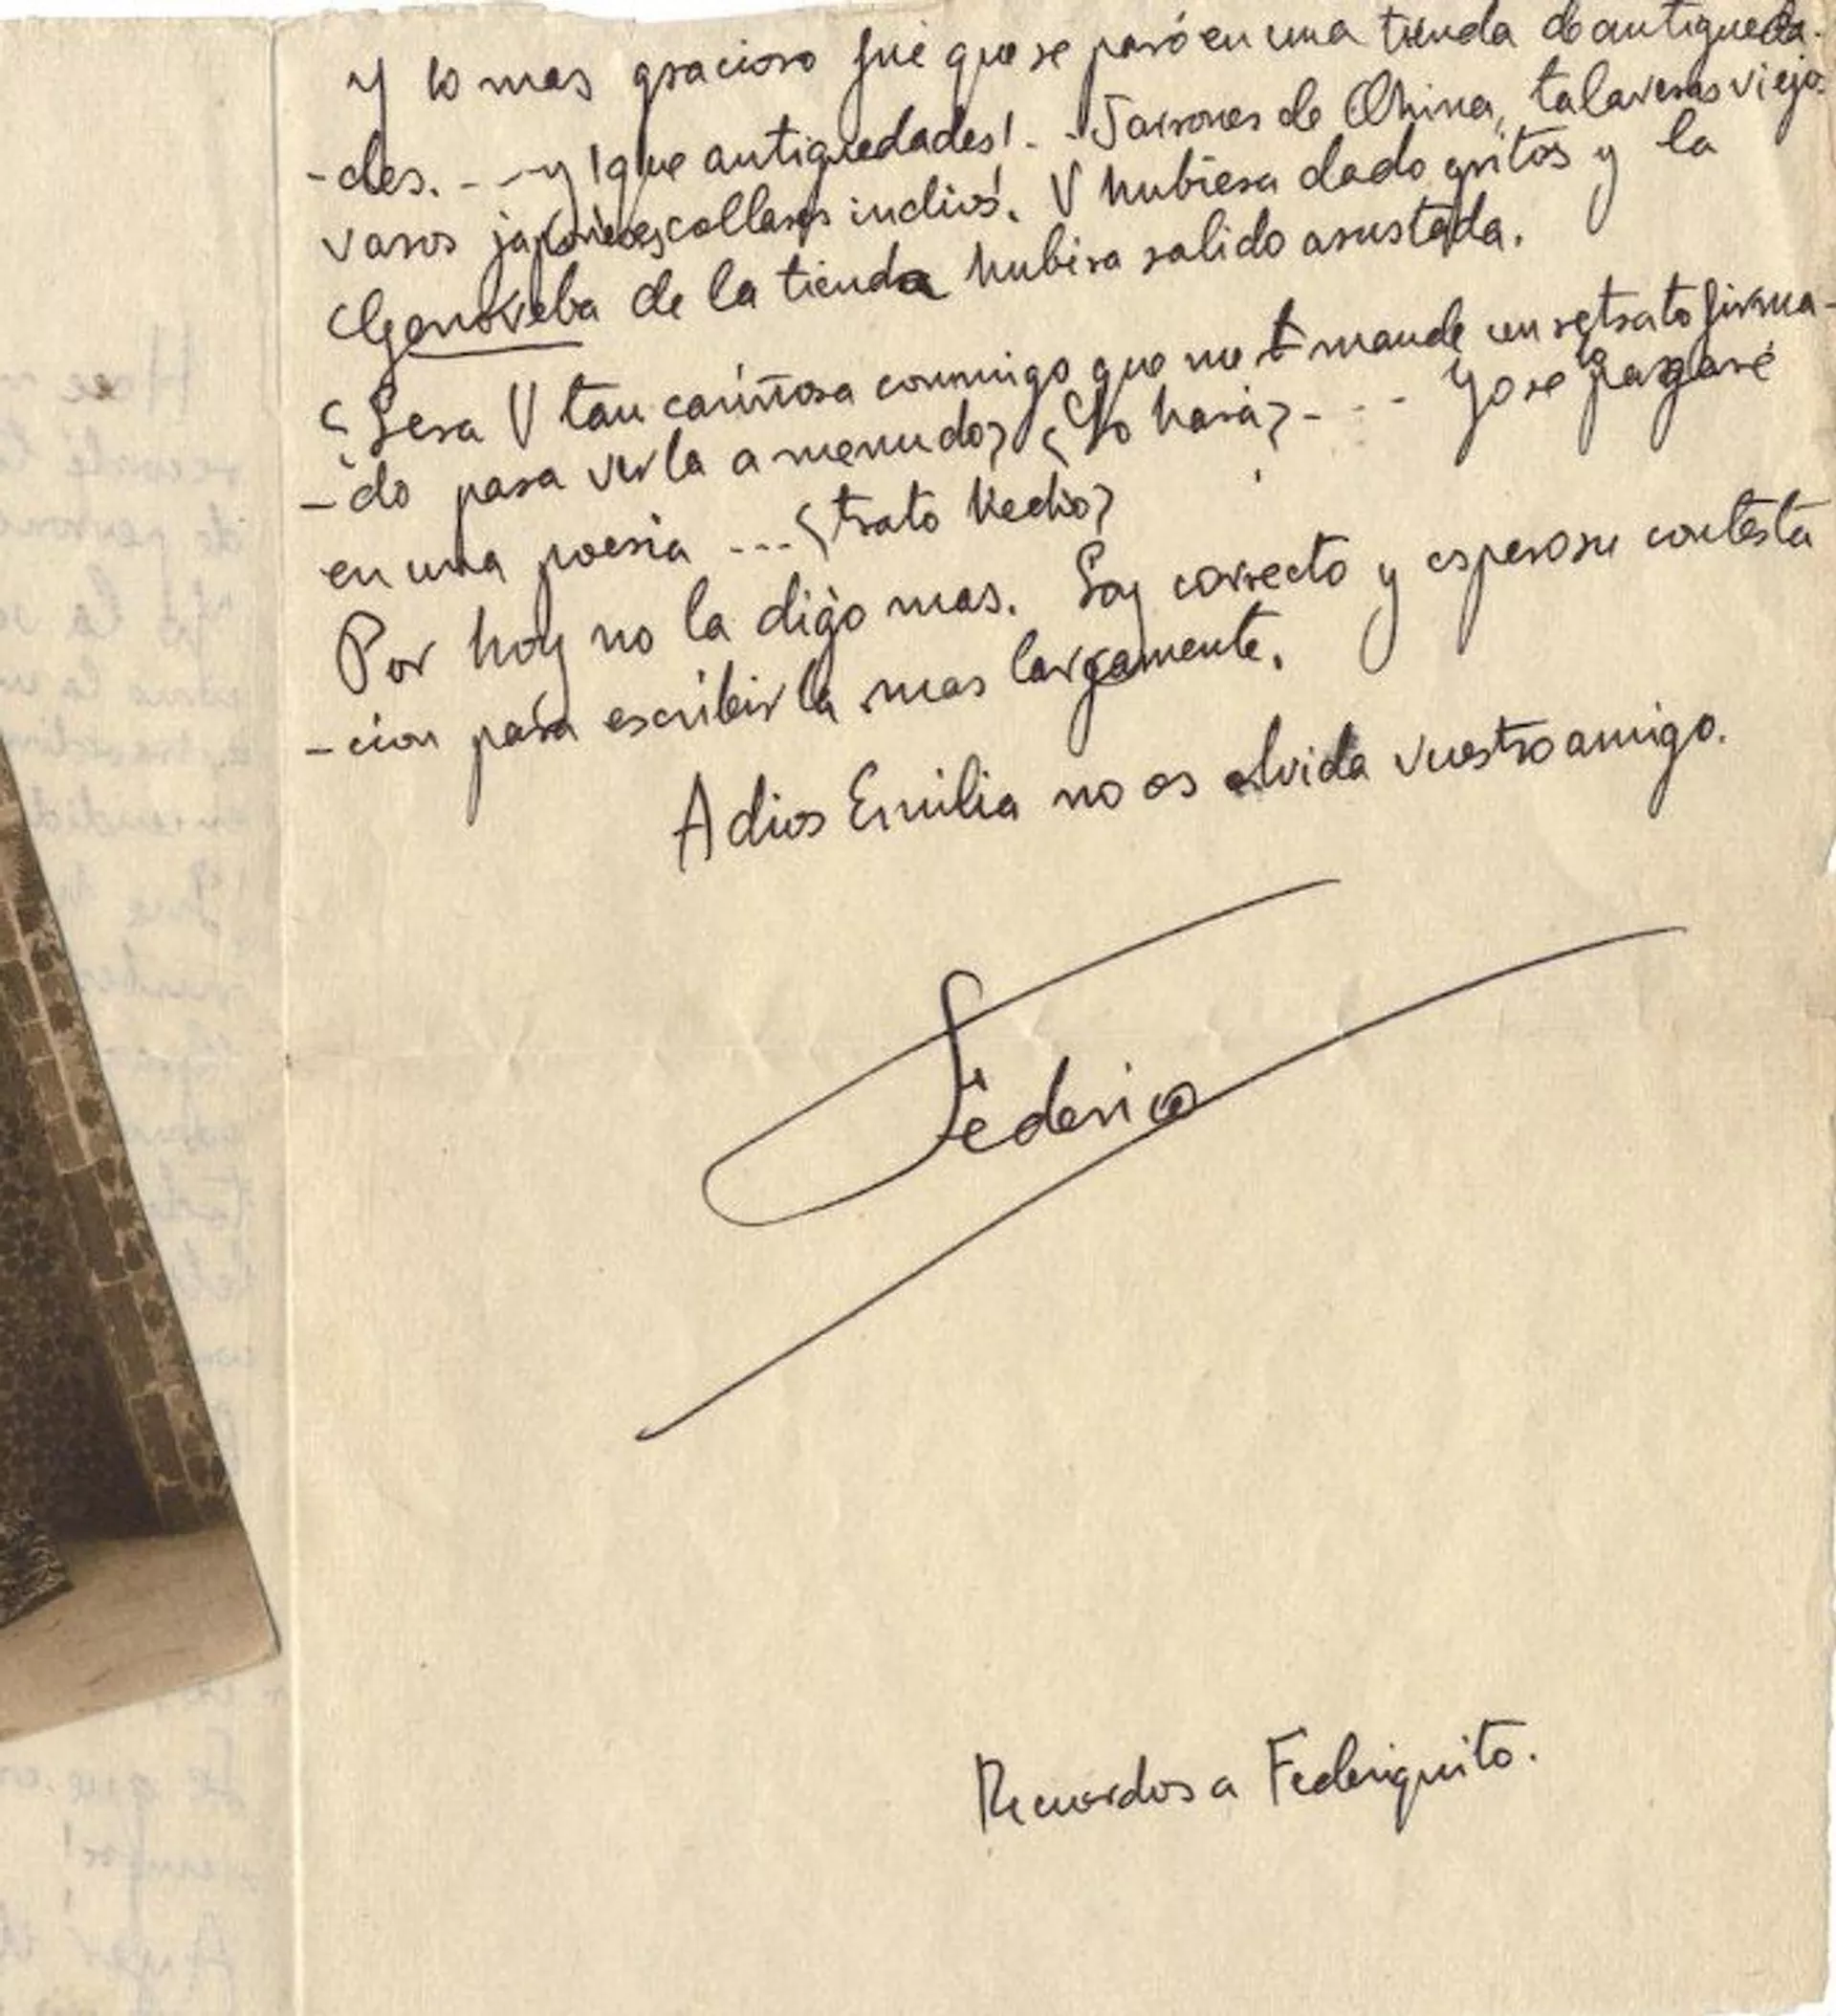 Y lo mas gracioso fué que se paró en una tienda de antigueda-
-des. - - - y ¡que antiguedades! - - Jarrones de China, talaveras viejas
vasos japoneses, collares indios. V hubiera dado gritos y la
Genoveba de la tienda hubiera salido asustada.
¿Sera V tan cariñosa conmigo que me mande un retrato firma-
-do para verla a menudo? ¿Lo hará? - . . - Yo se lo pagaré
en una poesia ...¿trato hecho?
Por hoy no la digo mas. Soy correcto y espero su contesta
-cion para escribirla mas largamente.
Adios Emilia no os olvida vuestro amigo.
Federico
Recuerdos a Federiquito.